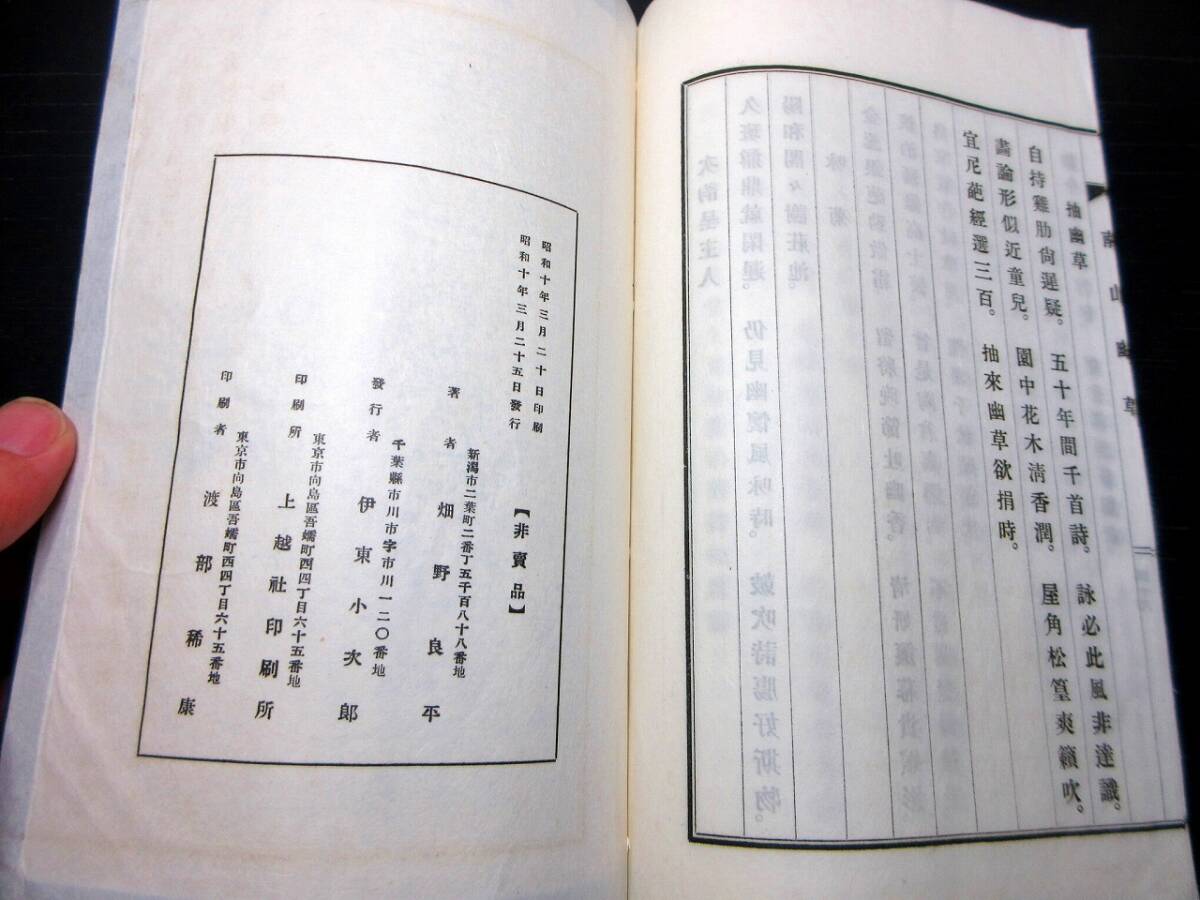 抽幽草
自持雞肋尙遲疑。 五十年間千首詩。 詠必此風非達識。
畵論形似近童兒。 園中花木淸香潤。 屋角松篁爽籟吹。
宜尼葩經選三百。 抽來幽草欲捐時。
昭和十年三月二十日印刷
昭和十年三月二十五日發行
【非賣品】
新潟市二葉町二番丁五千百八十八番地
著者 畑野良平
千葉縣市川市字市川一二〇番地
發行者 伊東小次郎
東京市向島區吾嬬町西四丁目六十五番地
印刷所 上越社印刷所
東京市向島區吾嬬町西四丁目六十五番地
印刷者 渡部稀康